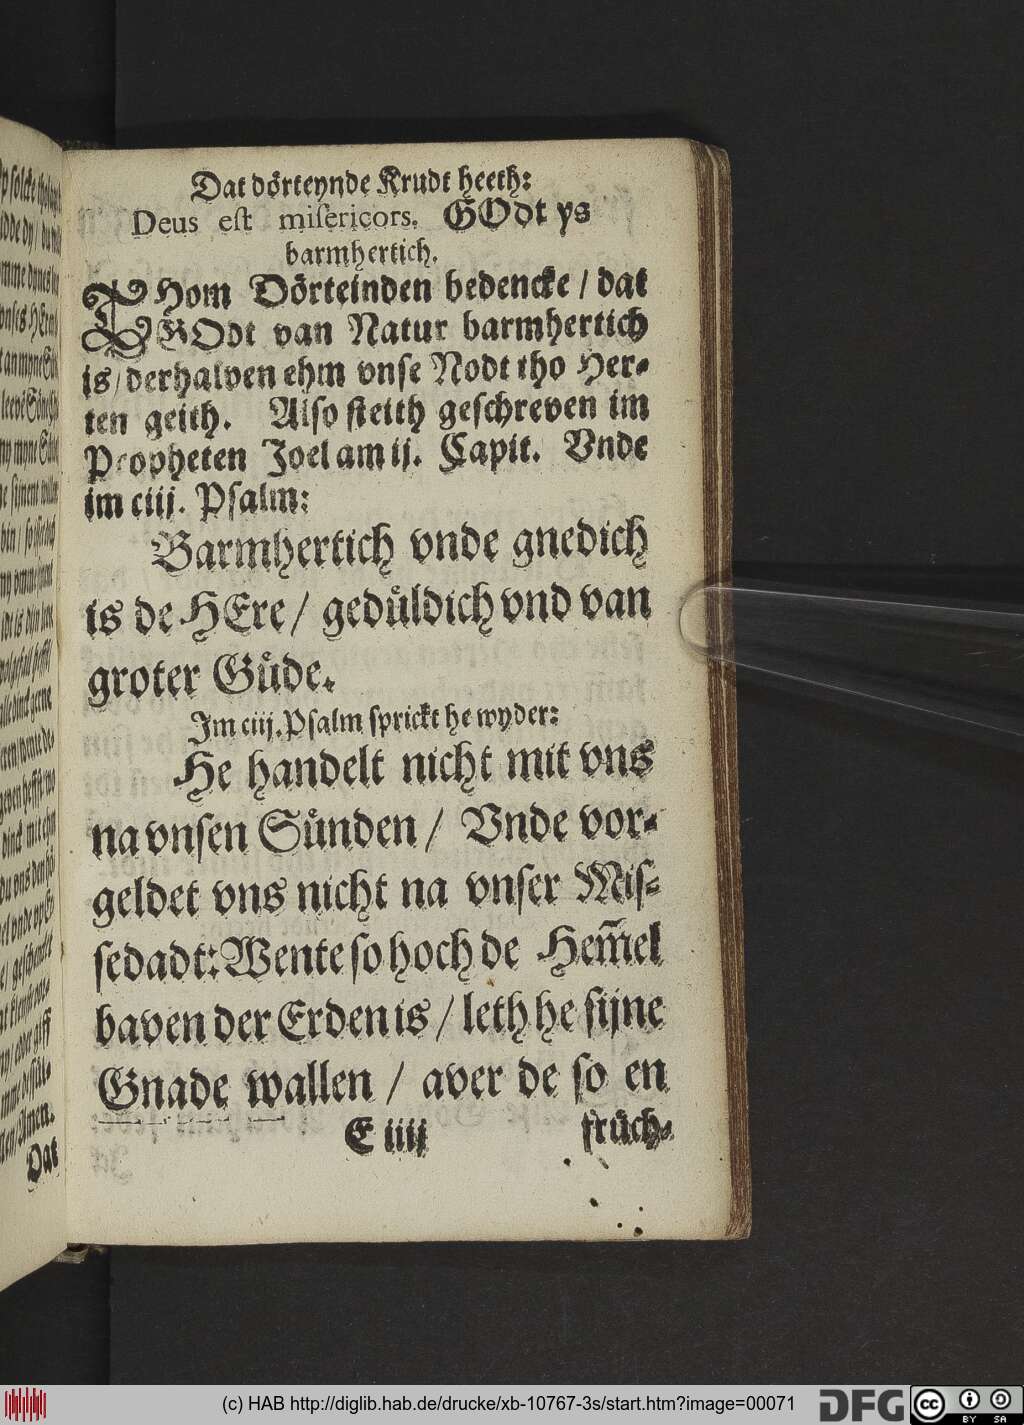 Dat dörteynde Krudt heeth:
Deus eſt miſericors. GOdt ys
barmhertich.
THom Dörteinden bedencke / dat
GOdt van Natur barmhertich
is / derhalven ehm vnſe Nodt tho Her-
ten geith. Alſo ſteith geſchreven im
Propheten Joel am ij. Capit. Vnde
im ciij. Pſalm:
Barmhertich vnde gnedich
is de HEre / gedüldich vnd van
groter Güde.
Im ciij. Pſalm ſprickt he wyder:
He handelt nicht mit vns
na vnſen Sünden / Vnde vor-
geldet vns nicht na vnſer Miſ-
ſedadt: Wente ſo hoch de Hem̃el
baven der Erden is / leth he ſijne
Gnade wallen / aver de ſo en
E iiij früch-
Dat
(c) HAB http://diglib.hab.de/drucke/xb-10767-3s/start.htm?image=00071
DFG
cc
BY SA